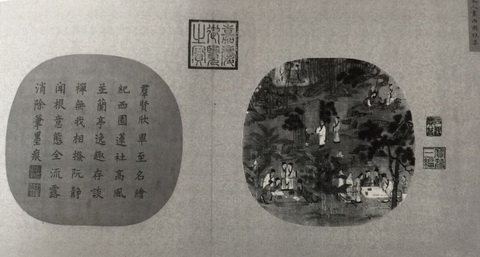 嘉慶
御覽
之寶
羣賢欣畢至名繪
紀西園蓮社高風
並蘭亭逸趣存談
禪無我相撥阮靜
聞根意態全流露
消除筆墨痕
寶笈
三編